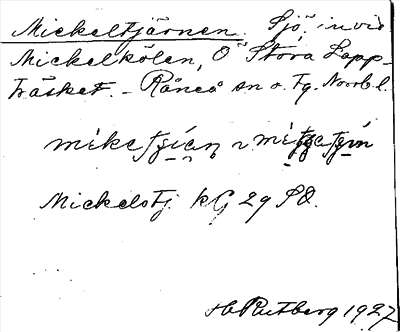 Mickeltjärnen. Sjö, invid
Mickelkölen, O Stora Lapp-
träsket. - Råneå sn o. tg. Norrb. l.
Mickelstj. kG 29 SO.
H. Rutberg 1927